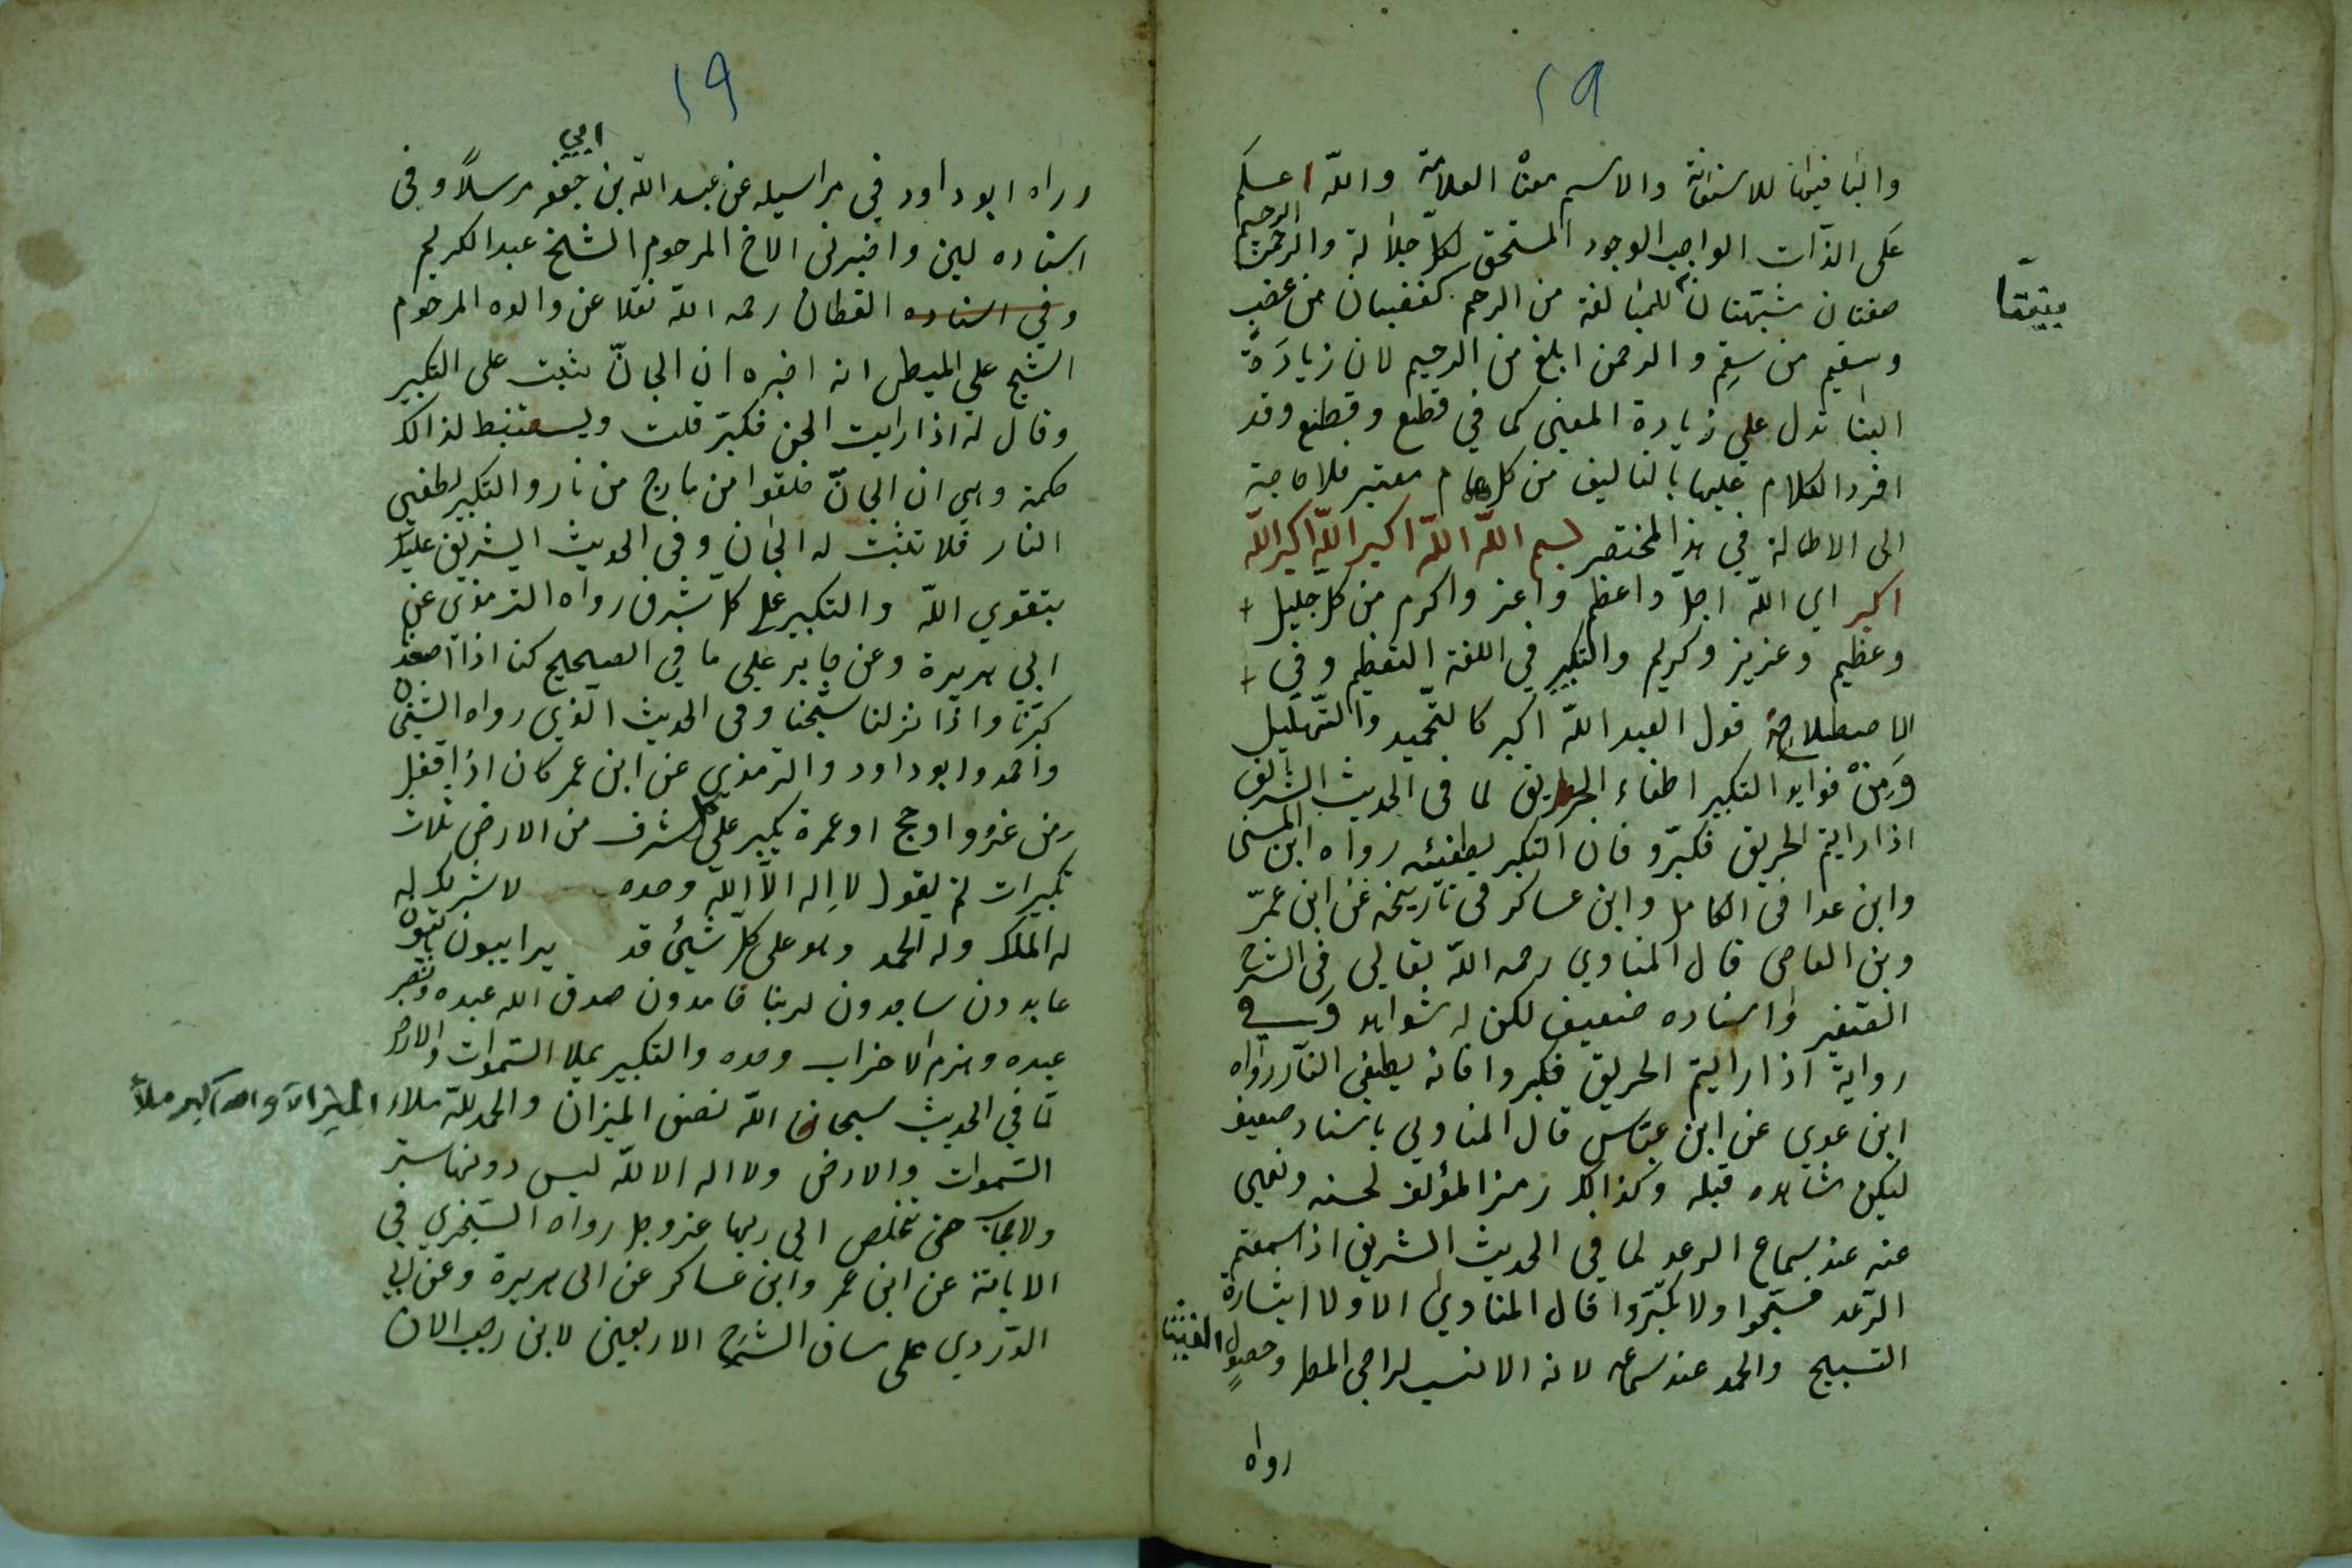 ١٩
والبا فيها للاستعانة والاسم معناه العلامة والله اعلم
على الذات الواجب الوجود المستحق لكل جلالة والرحمن الرحيم
صفتان شبهتان للمبالغة من الرحم كغضبان من غضب
بنيتا
وسقيم من سقم والرحمن ابلغ من الرحيم لان زيادة
البنا تدل على زيادة المعنى كما في قطع وقطع وقد
افرد الكلام عليها بالتاليف من كل معتبر فلا حاجة
الى الاطالة في هذا المختصر بسم الله الله اكبر الله اكبر الله
اكبر اي الله اجل واعظم واعز واكرم من كل جليل
وعظيم وعزيز وكريم والتكبير في اللغة التعظيم وفي
الاصطلاح قول العبد الله اكبر كالتحميد والتهليل
ومن فوايد التكبير اطفاء الحريق لما في الحديث الشريف
اذا رايتم الحريق فكبرو فان التكبير يطفئه رواه ابن السنى
وابن عدا في الكامل وابن عساكر في تاريخه عن ابن عمر
وبن العاصى قال المناوي رحمه الله تعالى في الشرح
الصغير واسناده ضعيف لكن له شواهد وفي
رواية اذا رايتم الحريق فكبروا فانه يطفي النار رواه
ابن عدي عن ابن عباس قال المناوي باسناد ضعيف
ليكن شاهده قبله وكذالك رمز المؤلف لحسنه ونهى
عنه عند سماع الرعد لما في الحديث الشريف اذا سمعتم
الرعد فسبحوا ولا تكبروا قال المناوي الاولا ايثارة
التسبيح والحمد عند سماعه لانه الانسب لراجى المطر وحصول الغيث
رواه
١٩
رراه ابو داود في مراسيله عن عبد الله بن ابي جعفر مرسلا وفى
اسناده لين واخبرنى الاخ المرحوم الشيخ عبد الكريم
وفي اسناده القطان رحمه الله نقلا عن والده المرحوم
الشيح على الميطل انه اخبره ان الجان يثبت على التكبير
وقال له اذا رايت الجن فكبر قلت ويستنبط لذالك
حكمة وهى ان الجان خلقوا من مارج من نار والتكبير يطفى
النار فلا تثبت له الجان وفي الحديث الشريف عليك
بتقوي الله والتكبير على كل شرف رواه الترمذي عن
ابي هريرة وعن جابر على ما في الصحيح كنا اذا اصعدنا
كبرنا واذا نزلنا سبحنا وفى الحديث الذي رواه الشيخان
واحمد وابو داود والترمذي عن ابن عمر كان اذا قفل
من غزو او حج او عمرة يكبر على كل شرف من الارض ثلاث
تكبيرات ثم يقول لا اله الا الله وحده لا شريك له
له الملك وله الحمد وهو على كل شيئ قد ير ايبون تايبون
عابدون ساجدون لربنا حامدون صدق الله عبده ونصر
عبده وهزم الاحزاب وحده والتكبير يملا السموات والارض
لما في الحديث سبحان الله نصف الميزان والحمد لله ملاء الميزان والله اكبر ملأ
السموات والارض ولا اله الا لله ليس دونها ستر
ولا حجاب حتى تخلص الى ربها عز وجل رواه السجزي في
الابانة عن ابن عمر وابن عساكر عن ابى هريرة وعن ابي
الدردي على ساق الشرح الاربعين لابن رجب الان